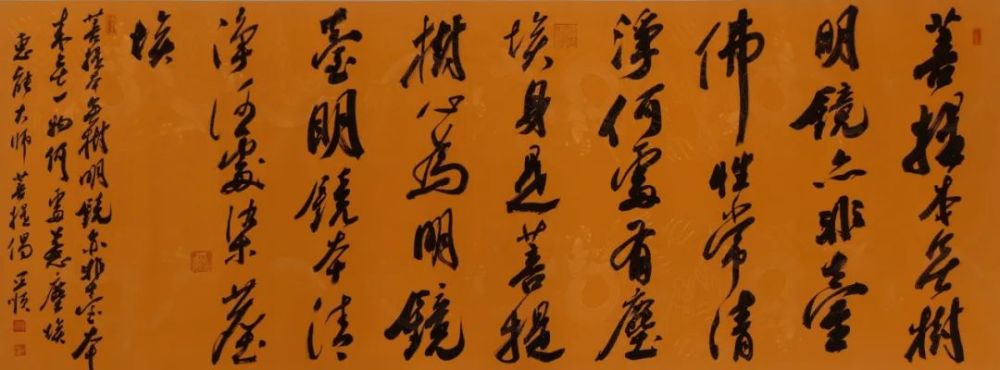 菩提本無樹
明鏡亦非臺
佛性常清
淨何處有塵
埃身是菩提
樹心為明鏡
臺明鏡本清
淨何處染塵
埃
菩提本無樹明鏡亦非臺本
來無一物何處惹塵埃
惠能大师菩提偈